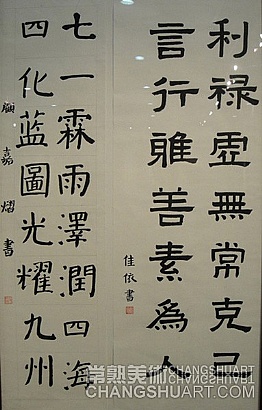 利禄虛無常克己
言行唯善素為人
佳依書
七一霖雨澤潤四海
四化蓝圖光耀九州
熠書
常熟美術 CHANGSHUART.COM
CHANGSHUART.COM